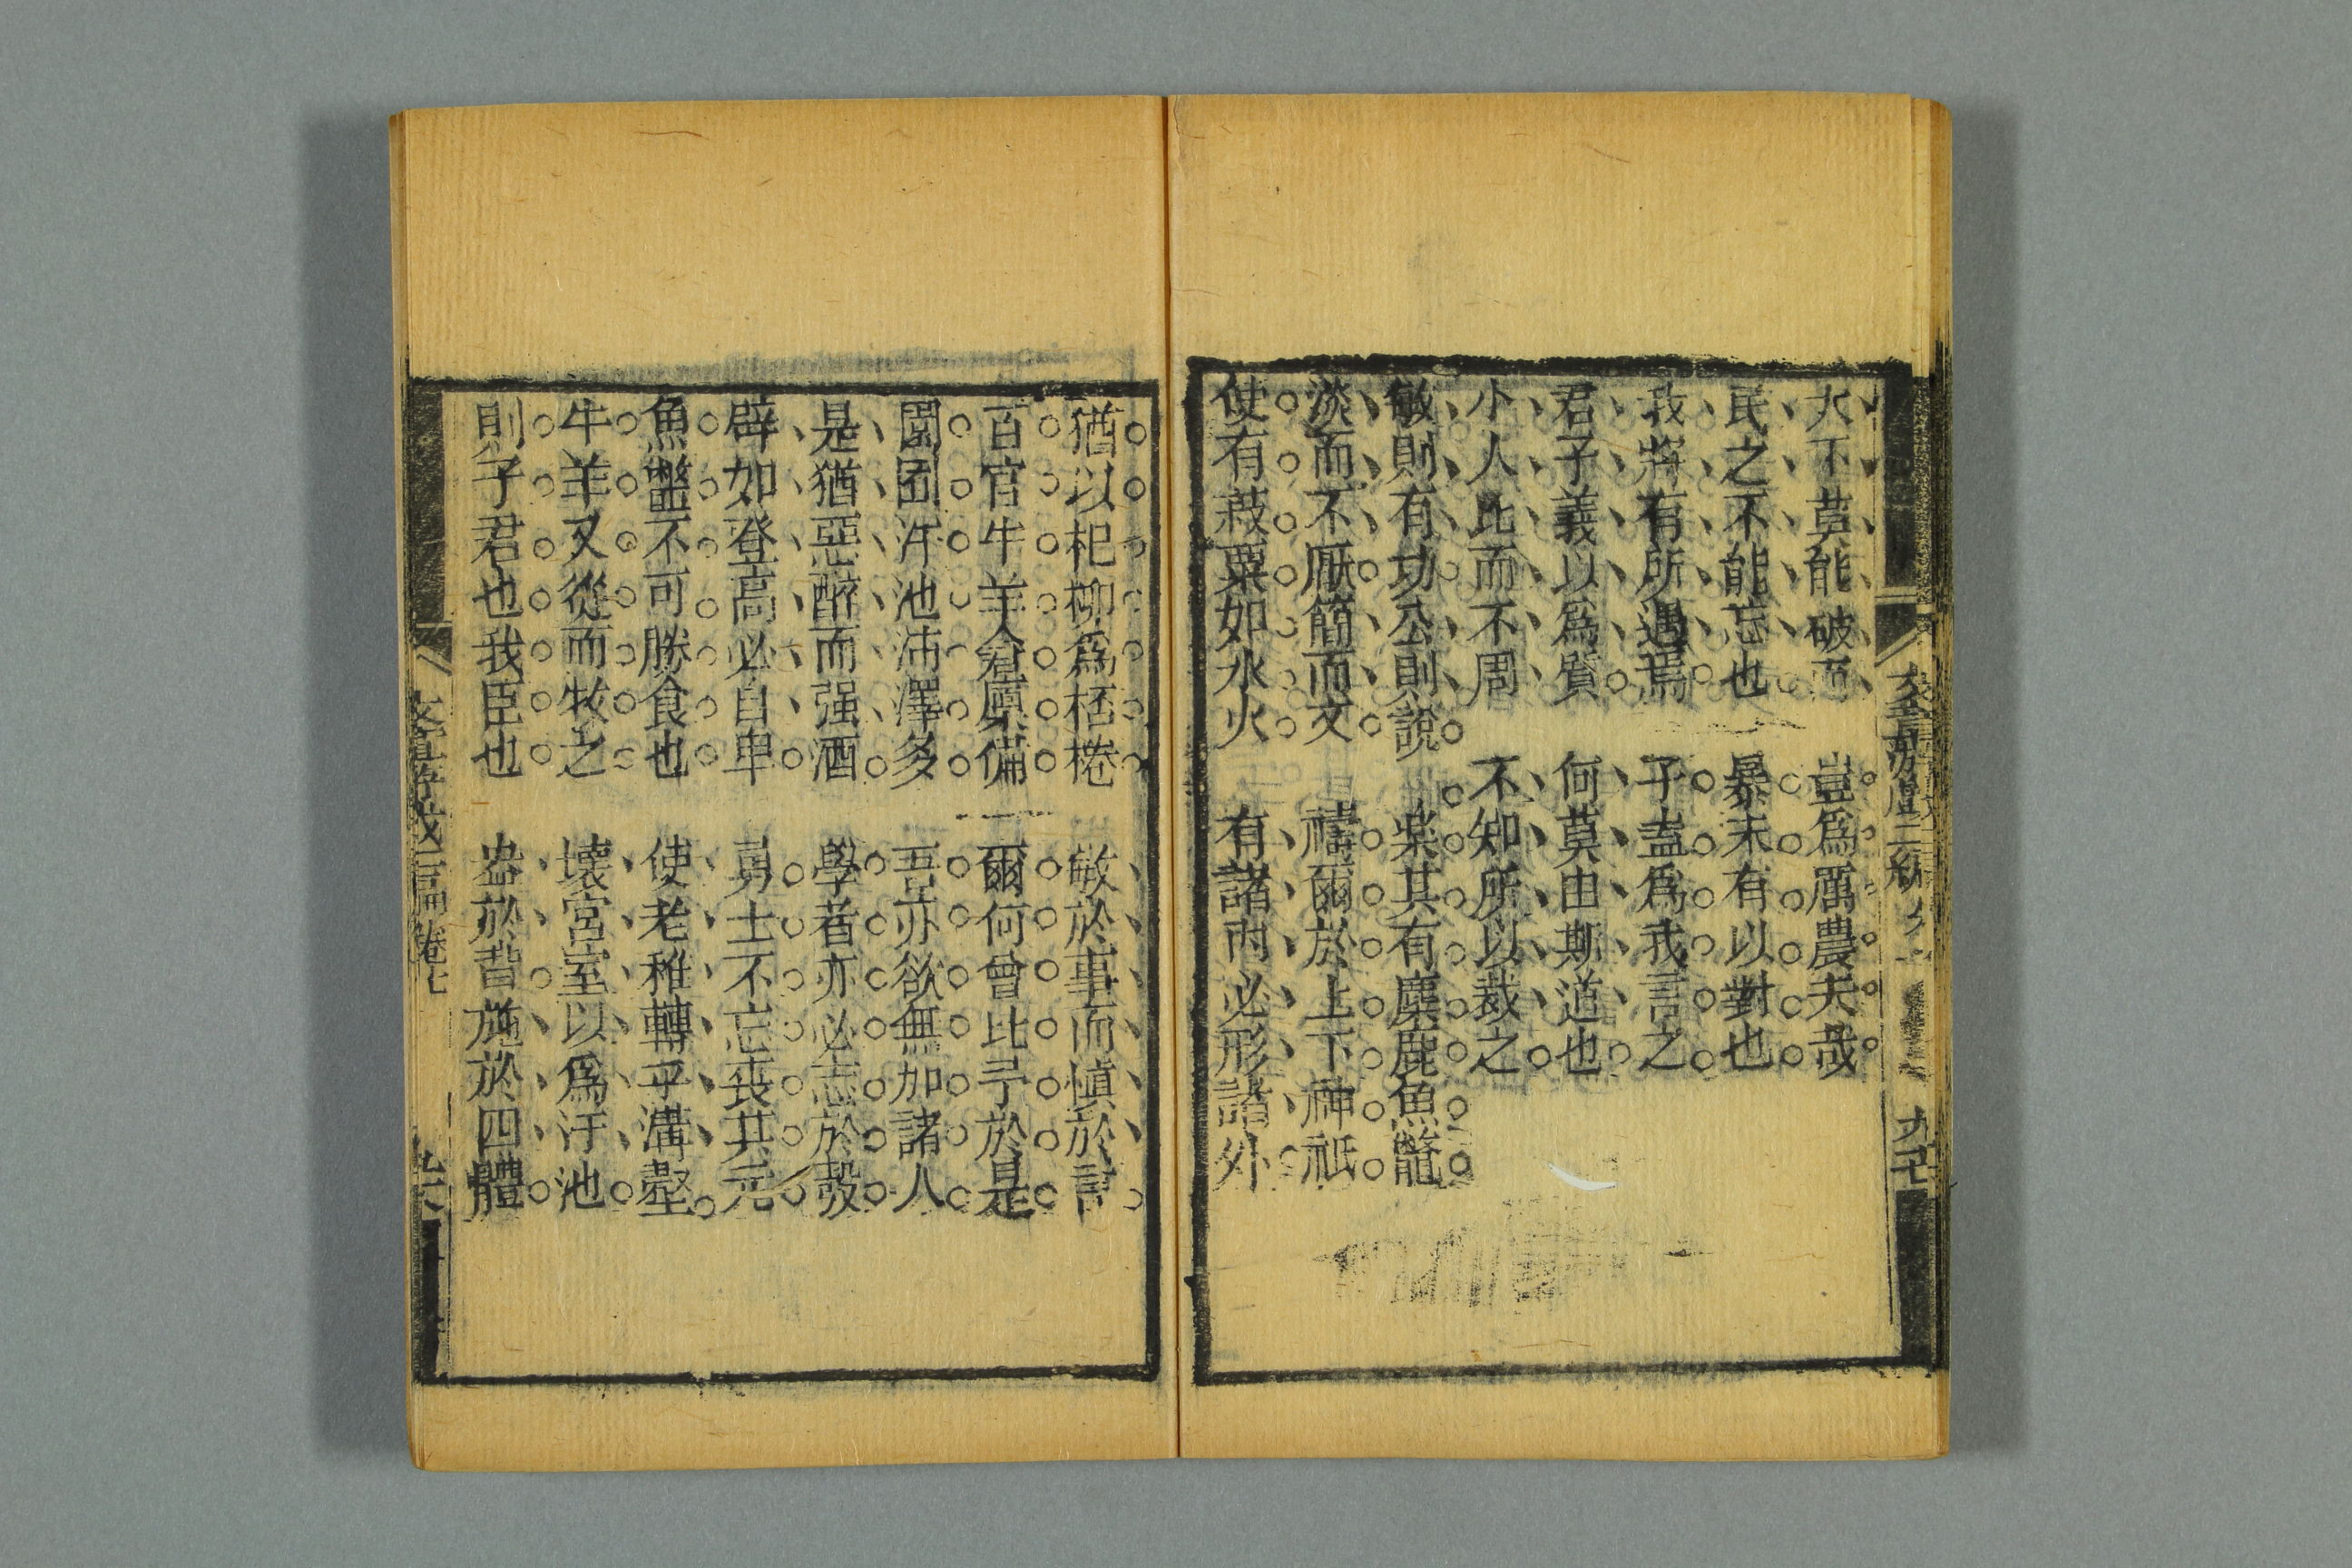 大下莫能破而　豈爲厲農夫哉
民之不能忘也　暴未有以對也
我將有所遇焉　子盍爲我言之
君子義以爲質　何莫由斯道也
小人比而不周　不知所以裁之
敏則有功公則說　樂其有麋鹿魚鼈
淡而不厭簡而文　禱爾於上下神祇
使有菽粟如水火　有諸內必形諸外
猶以杞柳爲桮棬　敏於事而慎於言
百官牛羊倉廩備　爾何曾比予於是
園囿汙池沛澤多　吾亦欲無加諸人
是猶惡醉而强酒　學者亦必志於彀
辟如登高必自卑　勇士不忘喪其元
魚鼈不可勝食也　使老稚轉乎溝壑
牛羊又從而牧之　壞宮室以爲汙池
則子君也我臣也　盎於背施於四體